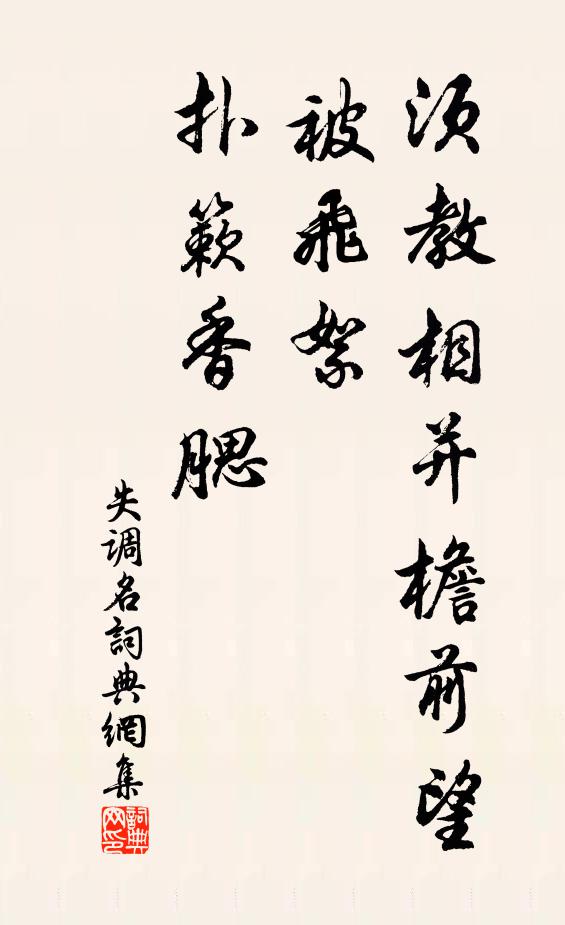 须教相并檐前望
被飛絮
扑簌香腮
失调名詞典網集
詞典网印